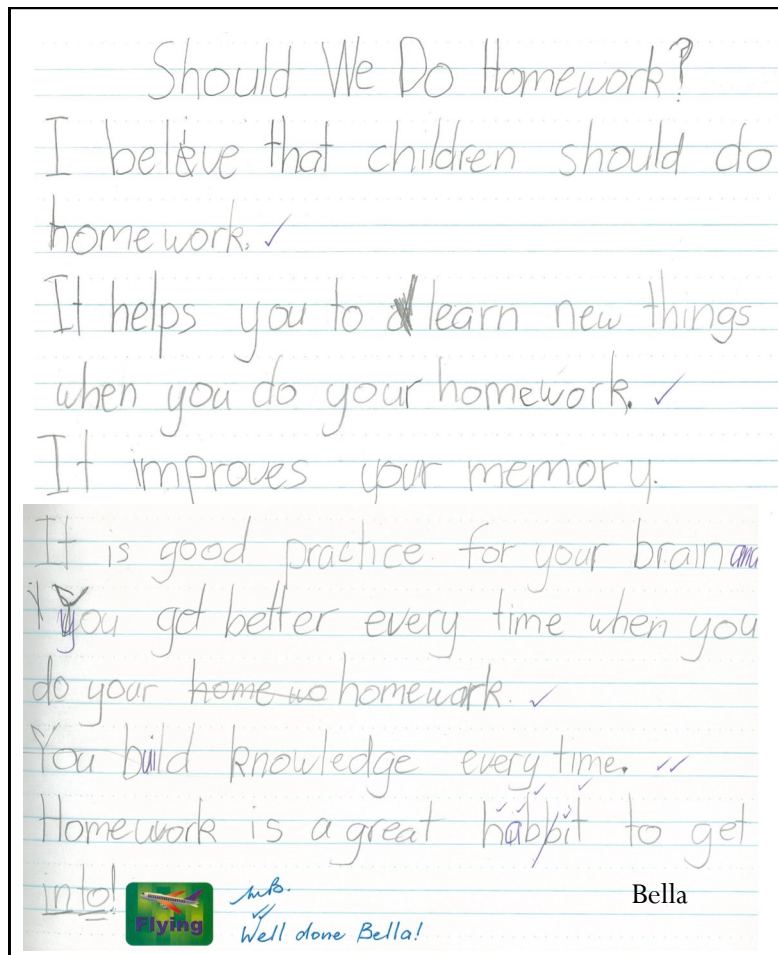 Should We Do Homework?
I believe that children should do
homework.
It helps you to learn new things
when you do your homework.
It improves your memory.
It is good practice for your brain and
you get better every time when you
do your home wo homework.
You build knowledge every time.
Homework is a great habbit to get
into!
Flying
Well done Bella!
Bella